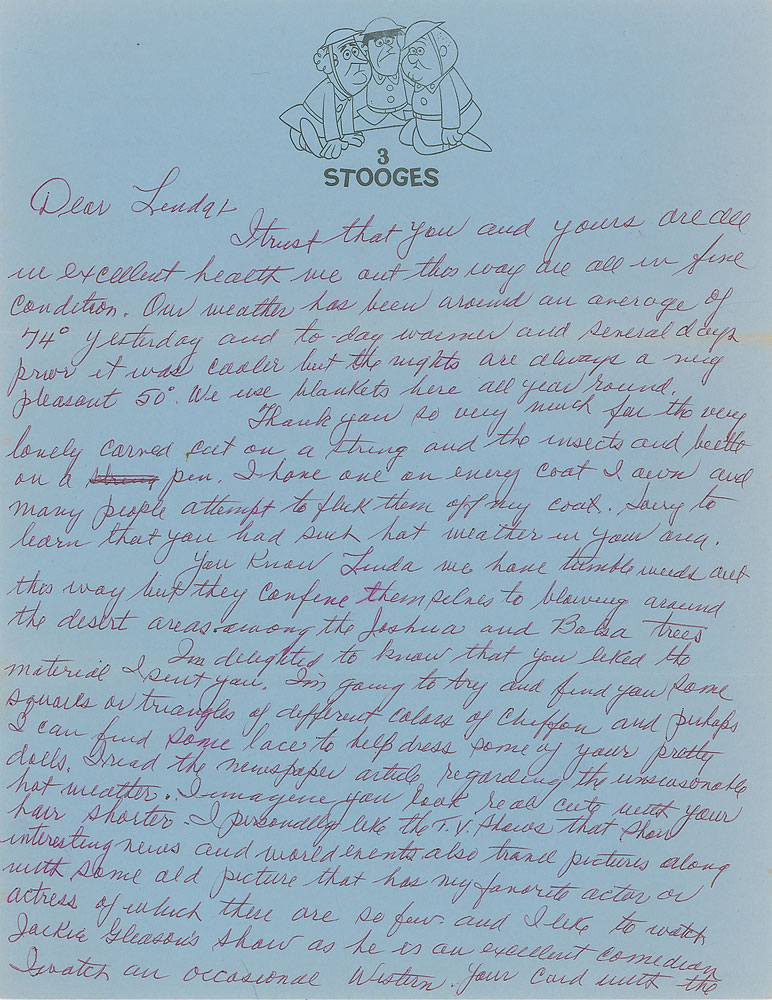 3
STOOGES
Dear Linda:
I trust that you and yours are all
in excellent health we out this way are all in fine
condition. Our weather has been around an average of
74° yesterday and to-day warmer and several days
prior it was cooler but the nights are always a very
pleasant 50°. We use blankets here all year round.
Thank you so very much for the very
lovely carved cat on a string and the insects and beetle
on a string pen. I have one on every coat I own and
many people attempt to flick them off my coat. Sorry to
learn that you had such hot weather in your area.
You know Linda we have tumble weeds out
this way but they confine themselves to blowing around
the desert areas among the Joshua and Balsa trees
I'm delighted to know that you liked the
material I sent you. I'm going to try and find you some
squares or triangles of different colors of Chiffon and perhaps
I can find some lace to help dress some of your pretty
dolls. I read the newspaper article regarding the unseasonable
hot weather. I imagine you look real cute with your
hair shorter. I personally like the T.V. shows that show
interesting news and world events also travel pictures along
with some old picture that has my favorite actor or
actress of which there are so few. and I like to watch
Jackie Gleason's show as he is an excellent comedian
I watch an occasional Western. Your card with the